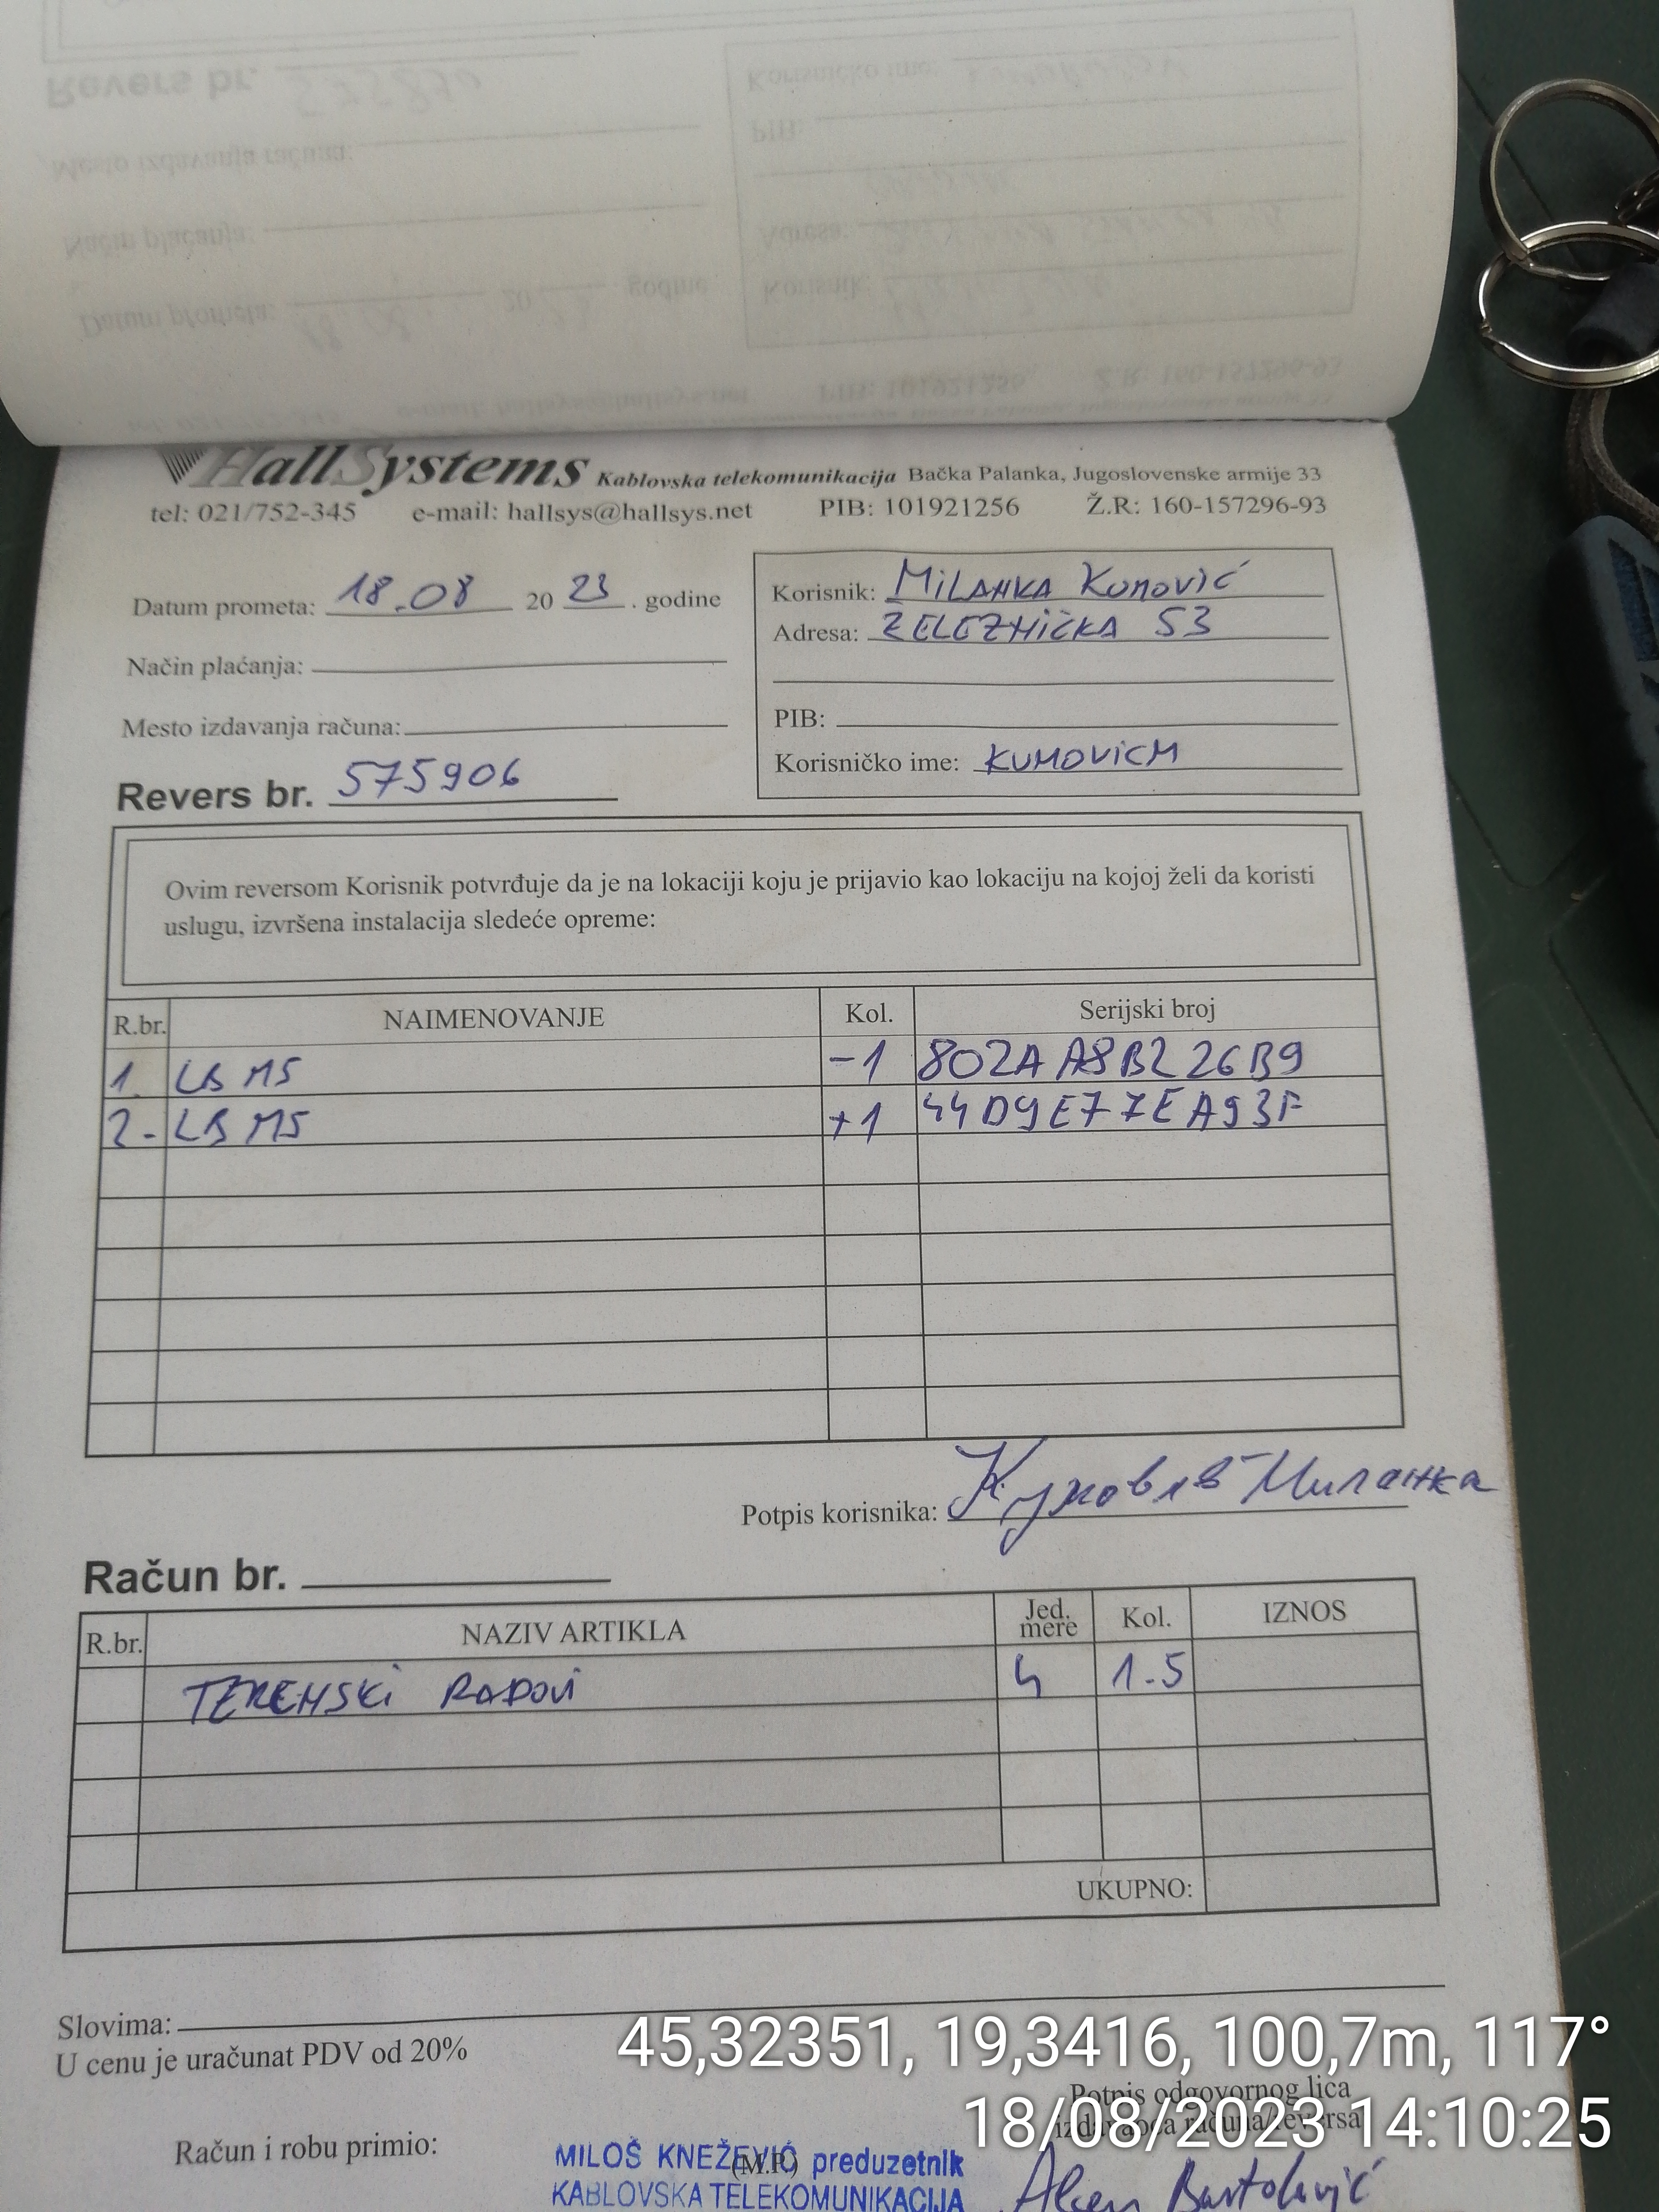 HallSystems Kablovska telekomunikacija Bačka Palanka, Jugoslovenske armije 33
tel: 021/752-345 e-mail: hallsys@hallsys.net PIB: 101921256 Ž.R: 160-157296-93
Datum prometa: 18.08 20 23 . godine
Način plaćanja:
Mesto izdavanja računa:
Revers br. 575906
Korisnik: MiLANKA KUMOVIĆ
Adresa: ŽELEZNIČKA 53
PIB:
Korisničko ime: KUMOVICM
Ovim reversom Korisnik potvrđuje da je na lokaciji koju je prijavio kao lokaciju na kojoj želi da koristi
uslugu, izvršena instalacija sledeće opreme:
R.br. NAIMENOVANJE Kol. Serijski broj
1. LB M5 -1 802AA8B226B9
2. LB M5 +1 44D9E77EA93F
Potpis korisnika: Кумовић Миланка
Račun br.
R.br. NAZIV ARTIKLA Jed. mere Kol. IZNOS
TERENSKI RADOVI h 1.5
UKUPNO:
Slovima:
U cenu je uračunat PDV od 20%
45,32351, 19,3416, 100,7m, 117°
Potpis odgovornog lica
izdavaoca računa/reversa
18/08/2023 14:10:25
Račun i robu primio:
(M.P.)
MILOŠ KNEŽEVIĆ preduzetnik
KABLOVSKA TELEKOMUNIKACIJA